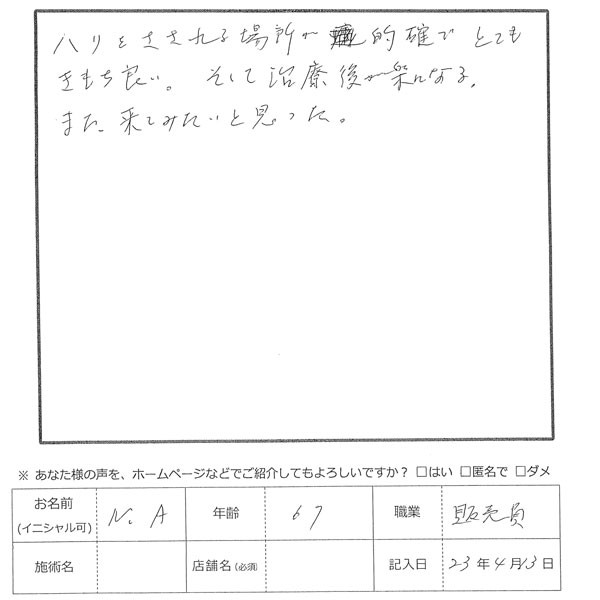 ハリをさされる場所が 的確で とても
きもち良い。 そして治療後が楽になる。
また、来てみたいと思った。
※ あなた様の声を、ホームページなどでご紹介してもよろしいですか？ □はい □匿名で □ダメ
お名前 (イニシャル可) N. A 年齢 67 職業 販売員
施術名 店舗名(必須) 記入日 23年4月13日